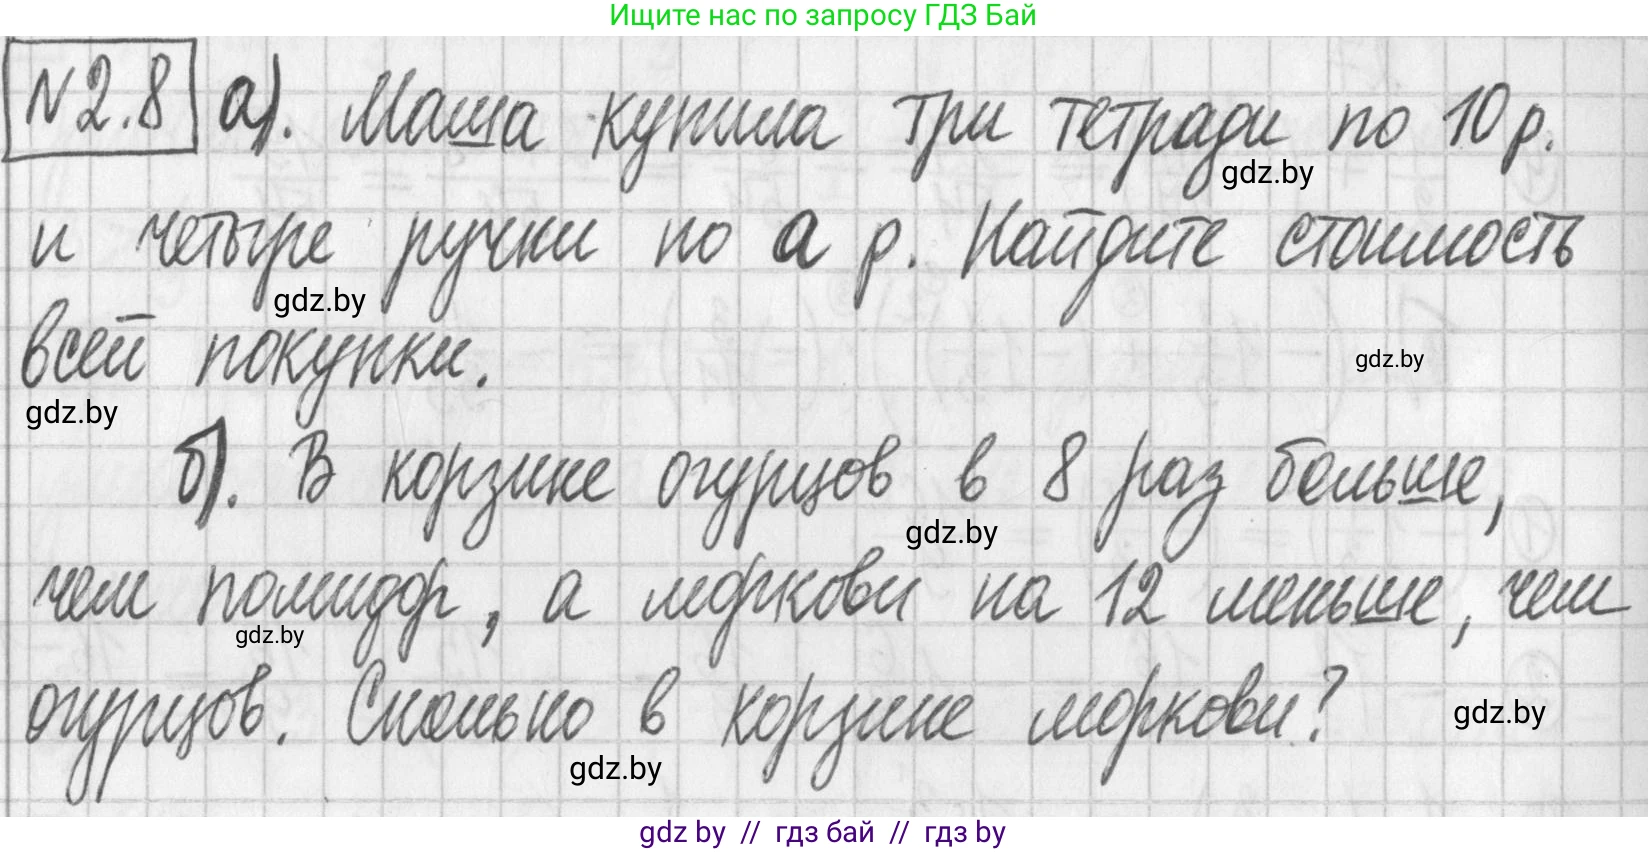 Ищите нас по запросу ГДЗ Бай
N2.8 а). Маша купила три тетради по 10 р.
gdz.by
и четыре ручки по а р. Найдите стоимость
gdz.by
всей покупки.
gdz.by
gdz.by
б). В корзине огурцов в 8 раз больше,
gdz.by
чем помидор, а моркови на 12 меньше, чем
gdz.by
огурцов. Сколько в корзине моркови?
gdz.by
gdz.by
gdz by // гдз бай // гдз by